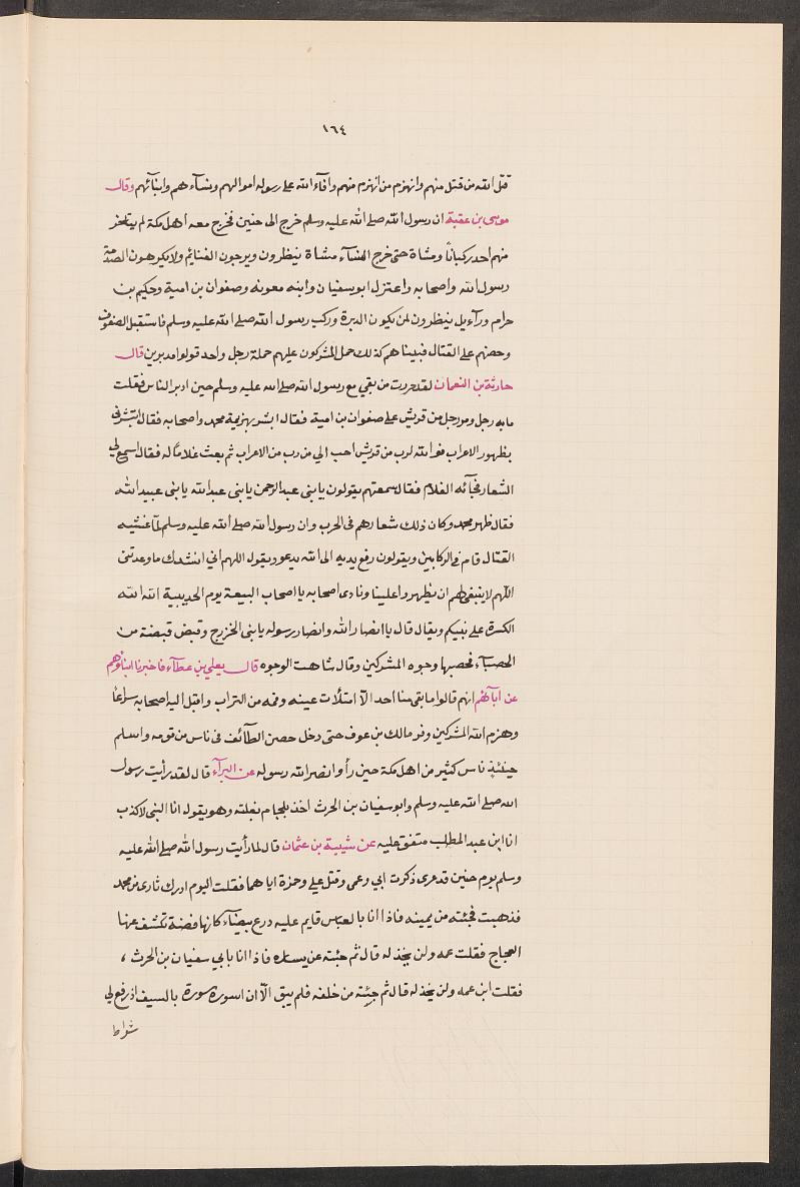 ١٦٤
قتل الله من قتل منهم وانهزم من انهزم منهم وافآء الله على رسوله اموالهم ونسآءهم وابنآئهم وقال
موسى بن عقبة ان رسول الله صلى الله عليه وسلم خرج الى حنين فخرج معه اهل مكة لم يتاخر
منهم احد ركباناً ومشاة حتى خرج النسآء مشاة ينظرون ويرجون الغنائم ولا يكرهون الصدمة
رسول الله واصحابه واعتزل ابوسفيان وابنه معوية وصفوان بن امية وحكيم بن
حزام ورآء يل ينظرون لمن تكون الدبرة وركب رسول الله صلى الله عليه وسلم فاستقبل الصفوف
وحضهم على القتال فبينا هم كذلك حمل المشركون عليهم حملة رجل واحد فولوا مدبرين قال
حارثة بن النعمان لقد حزرت من بقي مع رسول الله صلى الله عليه وسلم حين ادبر الناس فقلت
مايه رجل ومر رجل من قريش على صفوان بن امية فقال ابشر بهزيمة محمد واصحابه فقال اتبشرني
بظهور الاعراب فوالله لرب من قريش احب الي من رب من الاعراب ثم بعث غلاماً له فقال اسمع لي
الشعار فجآئه الغلام فقال سمعتهم يقولون يا بنى عبدالرحمن يا بنى عبدالله يا بنى عبيدالله
فقال ظهر محمد وكان ذلك شعارهم فى الحرب وان رسول الله صلى الله عليه وسلم لما غشيه
القتال قام فى الركابين ويقولون رفع يديه الى الله يدعو ويقول اللهم اني انشدك ما وعدتنى
اللهم لا ينبغى لهم ان يظهروا علينا ونادى اصحابه يا اصحاب البيعة يوم الحديبية الله الله
الكرة على نبيكم ويقال قال يا انصار الله وانصار رسوله يا بنى الخزرج وقبض قبضة من
الحصبآء فحصبها وجوه المشركين وقال شاهت الوجوه قال يعلى بن عطآء فاخبرنا ابناؤهم
عن ابآئهم انهم قالوا ما بقى منا احد الّا امتلأت عينه وفمه من التراب واقبل اليه اصحابه سراعاً
وهزم الله المشركين وفر مالك بن عوف حتى دخل حصن الطآئف فى ناس من قومه واسلم
حينئذٍ ناس كثير من اهل مكة حين رأوا نصر الله رسوله عن البرآء قال لقد رأيت رسول
الله صلى الله عليه وسلم وابوسفيان بن الحرث اخذ بلجام بغلته وهو يقول انا النبى لا كذب
انا ابن عبد المطلب متفق عليه عن شيبة بن عثمان قال لما رأيت رسول الله صلى الله عليه
وسلم يوم حنين قد عرى ذكرت ابي وعمى وقتل علي وحمزة اياهما فقلت اليوم ادرك ثارى من محمد
فذهبت فجئته من يمينه فاذا انا بالعباس قايم عليه درع بيضآء كانها فضة تكشف عنها
العجاج فقلت عمه ولن يخذله قال ثم جئته عن يساره فاذا انا بابي سفيان بن الحرث ،
فقلت ابن عمه ولن يخذله قال ثم جئته من خلفه فلم يبق الّا ان اسوره سورة بالسيف اذ رفع لي
شواط